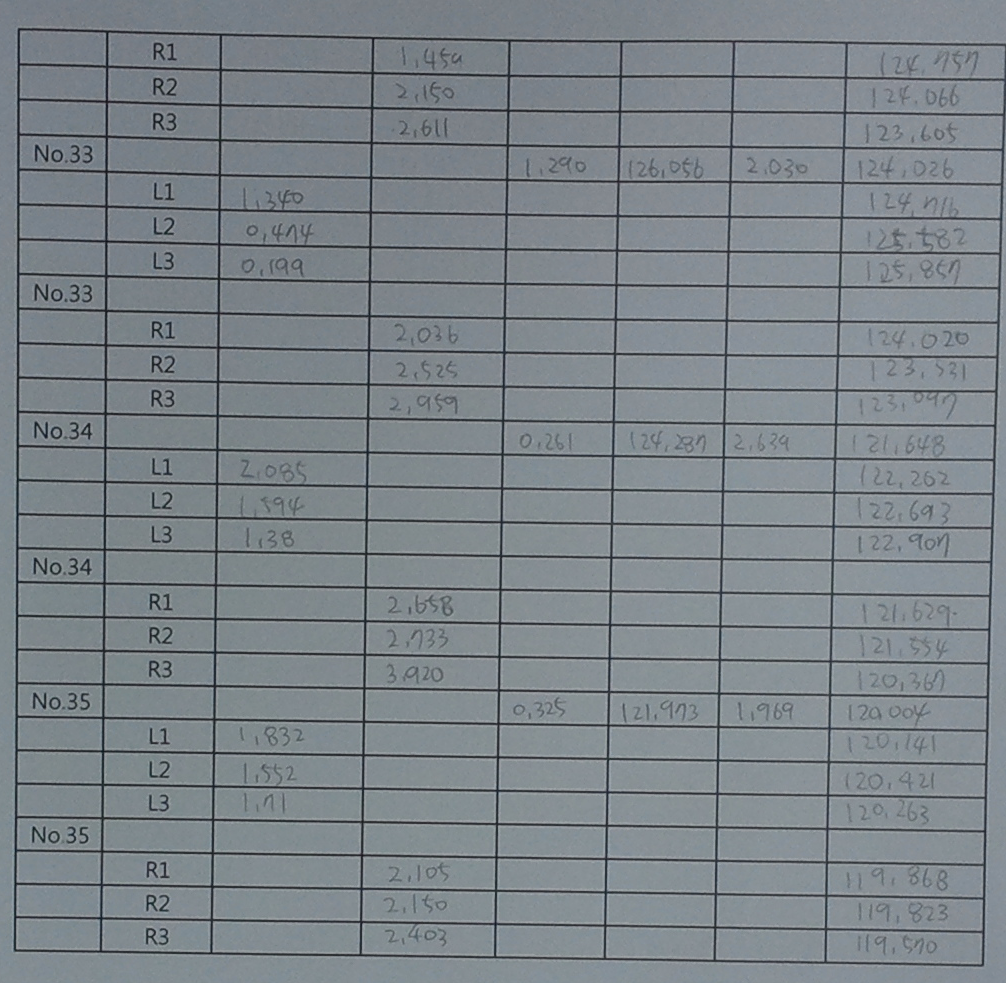 R1 1,459 124,757
R2 2,150 124,066
R3 2,611 123,605
No.33 1,290 126,056 2,030 124,026
L1 1,340 124,716
L2 0,474 125,582
L3 0,199 125,857
No.33
R1 2,036 124,020
R2 2,525 123,531
R3 2,959 123,097
No.34 0,261 124,287 2,639 121,648
L1 2,085 122,202
L2 1,594 122,693
L3 1,38 122,907
No.34
R1 2,658 121,629
R2 2,733 121,554
R3 3.920 120,367
No.35 0,325 121,973 1,969 120,004
L1 1,832 120,141
L2 1,552 120,421
L3 1,71 120,263
No.35
R1 2,105 119,868
R2 2,150 119,823
R3 2,403 119,570